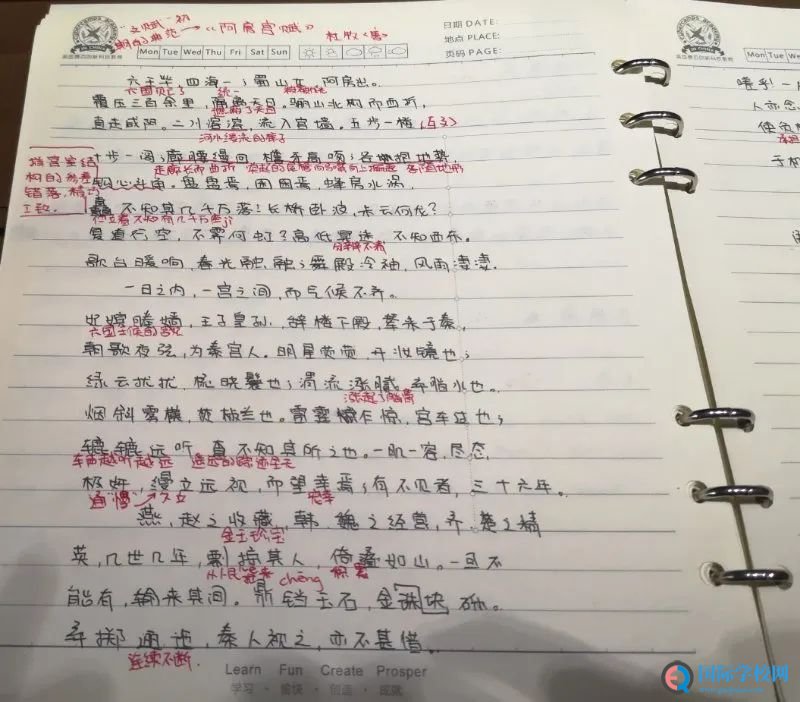 "文赋"初期的典范→《阿房宫赋》 杜牧<唐>
日期DATE:
地点PLACE:
页码PAGE:
Mon Tue Wed Thu Fri Sat Sun
Mon Tue Wed
六王毕,四海一;蜀山兀,阿房出。
六国灭亡了 统一
覆压三百余里,隔离天日。骊山北构而西折,
遮蔽了天日
直走咸阳。二川溶溶,流入宫墙。五步一楼(互文)
河水缓流的样子
十步一阁;廊腰缦回,檐牙高啄;各抱地势,
走廊长而曲折
各随地形
钩心斗角。盘盘焉,囷囷焉,蜂房水涡,
矗不知其几千万落!长桥卧波,未云何龙?
复道行空,不霁何虹?高低冥迷,不知西东。
分辨不清
歌台暖响,春光融融;舞殿冷袖,风雨凄凄。
一日之内,一宫之间,而气候不齐。
妃嫔媵嫱,王子皇孙,辞楼下殿,辇来于秦,
六国王侯的宫妃
朝歌夜弦,为秦宫人。明星荧荧,开妆镜也;
绿云扰扰,梳晓鬟也;渭流涨腻,弃脂水也。
涨起了脂膏
烟斜雾横,焚椒兰也。雷霆乍惊,宫车过也;
辘辘远听,杳不知其所之也。一肌一容,尽态
车声越听越远
极妍,缦立远视,而望幸焉;有不见者,三十六年。
通"慢" 宠幸
燕、赵之收藏,韩、魏之经营,齐、楚之精
金玉珍宝
英,几世几年,剽掠其人,倚叠如山。一旦不
chēng 积累
能有,输来其间。鼎铛玉石,金块珠砾。
弃掷逦迤,秦人视之,亦不甚惜。
连续不断。
Learn Fun Create Prosper
学习·愉快·创造·成就
嗟乎!一
人亦念
使负
国际学校网